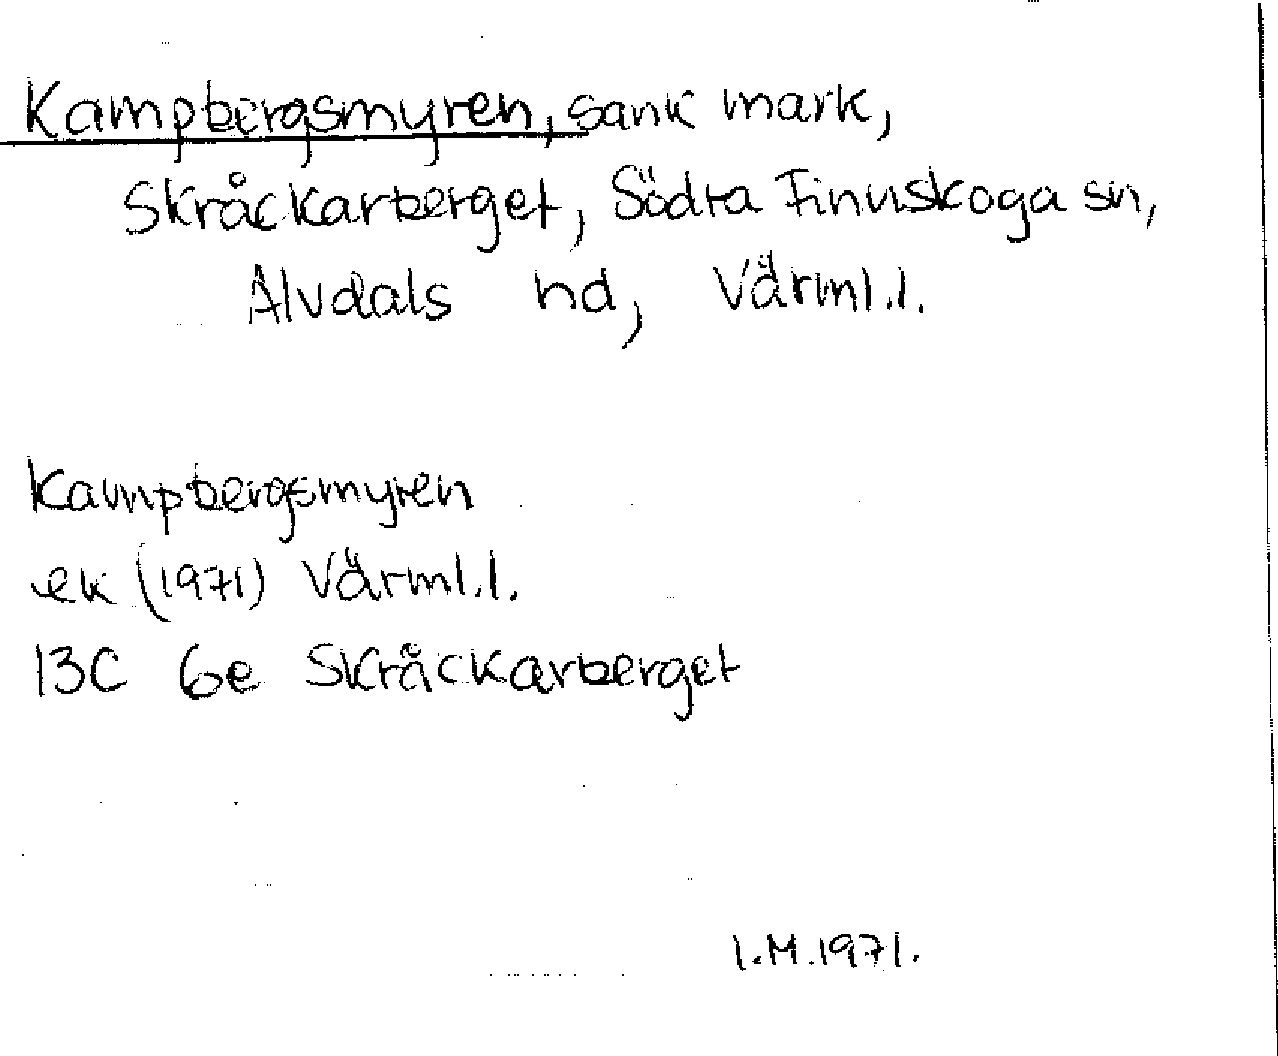 Kampbergsmyren, sank mark,
Skråckarberget, Södra Finnskoga sn,
Älvdals hd, Värml.l.
Kampbergsmyren
ek (1971) Värml.l.
13C 6e Skråckarberget
I.M.1971.